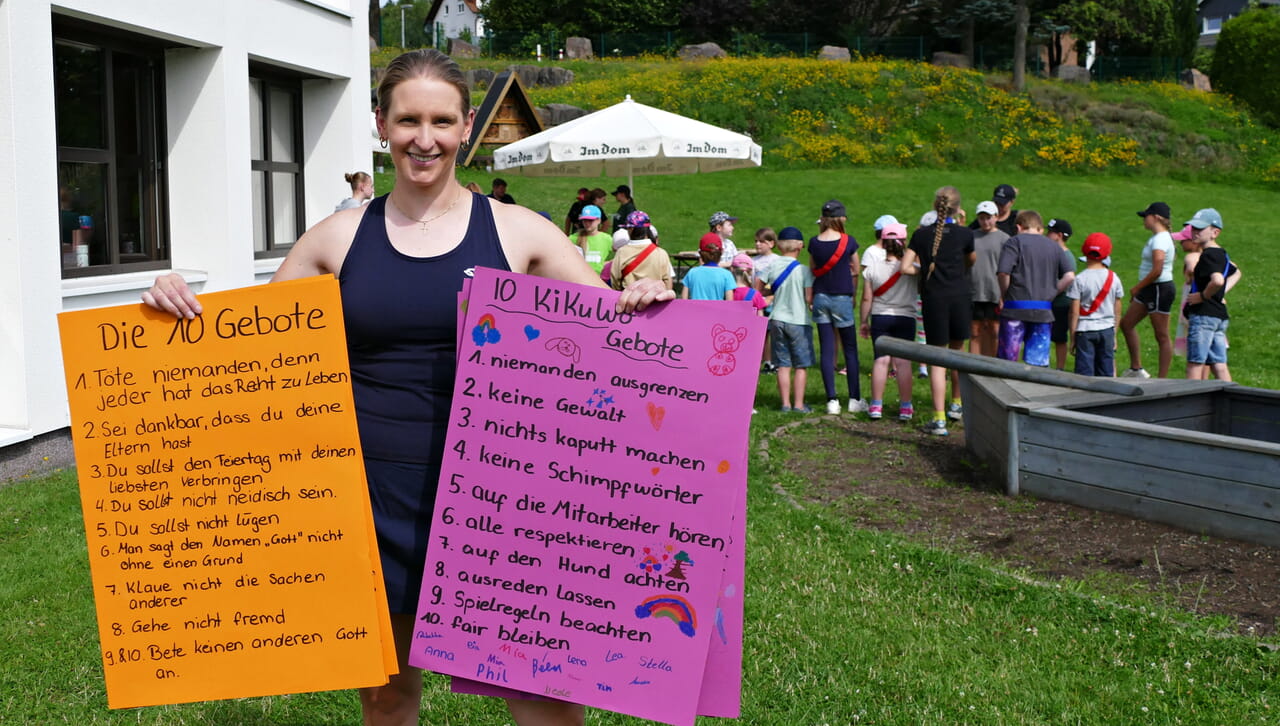 Im Dom
Im Dom
Die 10 Gebote
1. Töte niemanden, denn
jeder hat das Reht zu Leben
2. Sei dankbar, dass du deine
Eltern hast
3. Du sollst den Feiertag mit deinen
liebsten verbringen
4. Du sollst nicht neidisch sein.
5. Du sollst nicht lügen
6. Man sagt den Namen „Gott" nicht
ohne einen Grund
7. Klaue nicht die Sachen
anderer
8. Gehe nicht fremd
9.&10. Bete keinen anderen Gott
an.
10 KiKuWo
Gebote
1. niemanden ausgrenzen
2. keine Gewalt
3. nichts kaputt machen
4. keine Schimpfwörter
5. auf die Mitarbeiter hören
6. alle respektieren
7. auf den Hund achten
8. ausreden lassen
9. Spielregeln beachten
10. fair bleiben
Mia Lena Lea Stella
Anna Mia
Phil Tim